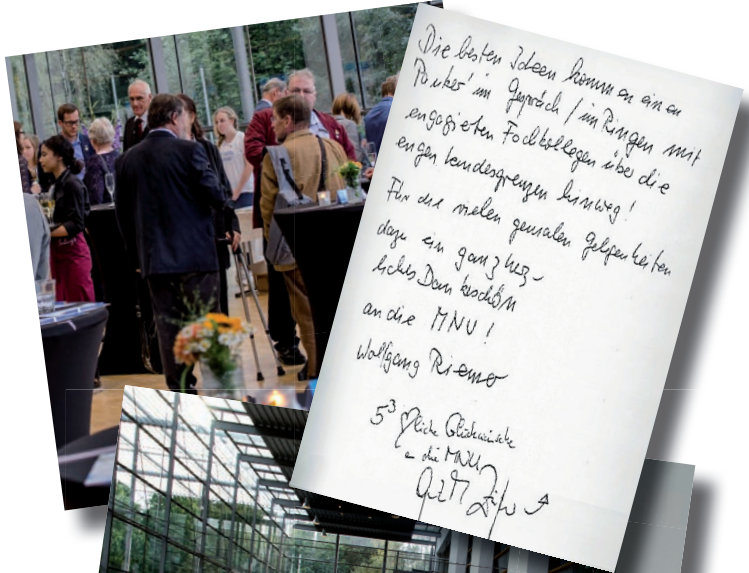 Die besten Ideen kommen einem
Pauker im Gespräch / im Ringen mit
engagierten Fachkollegen über die
engen Landesgrenzen hinweg!
Für die vielen genialen Gelegenheiten
dazu ein ganz herz-
liches Dankeschön
an die MNU!
Wolfgang Riemer
5³ ♡liche Glückwünsche
an die MNU